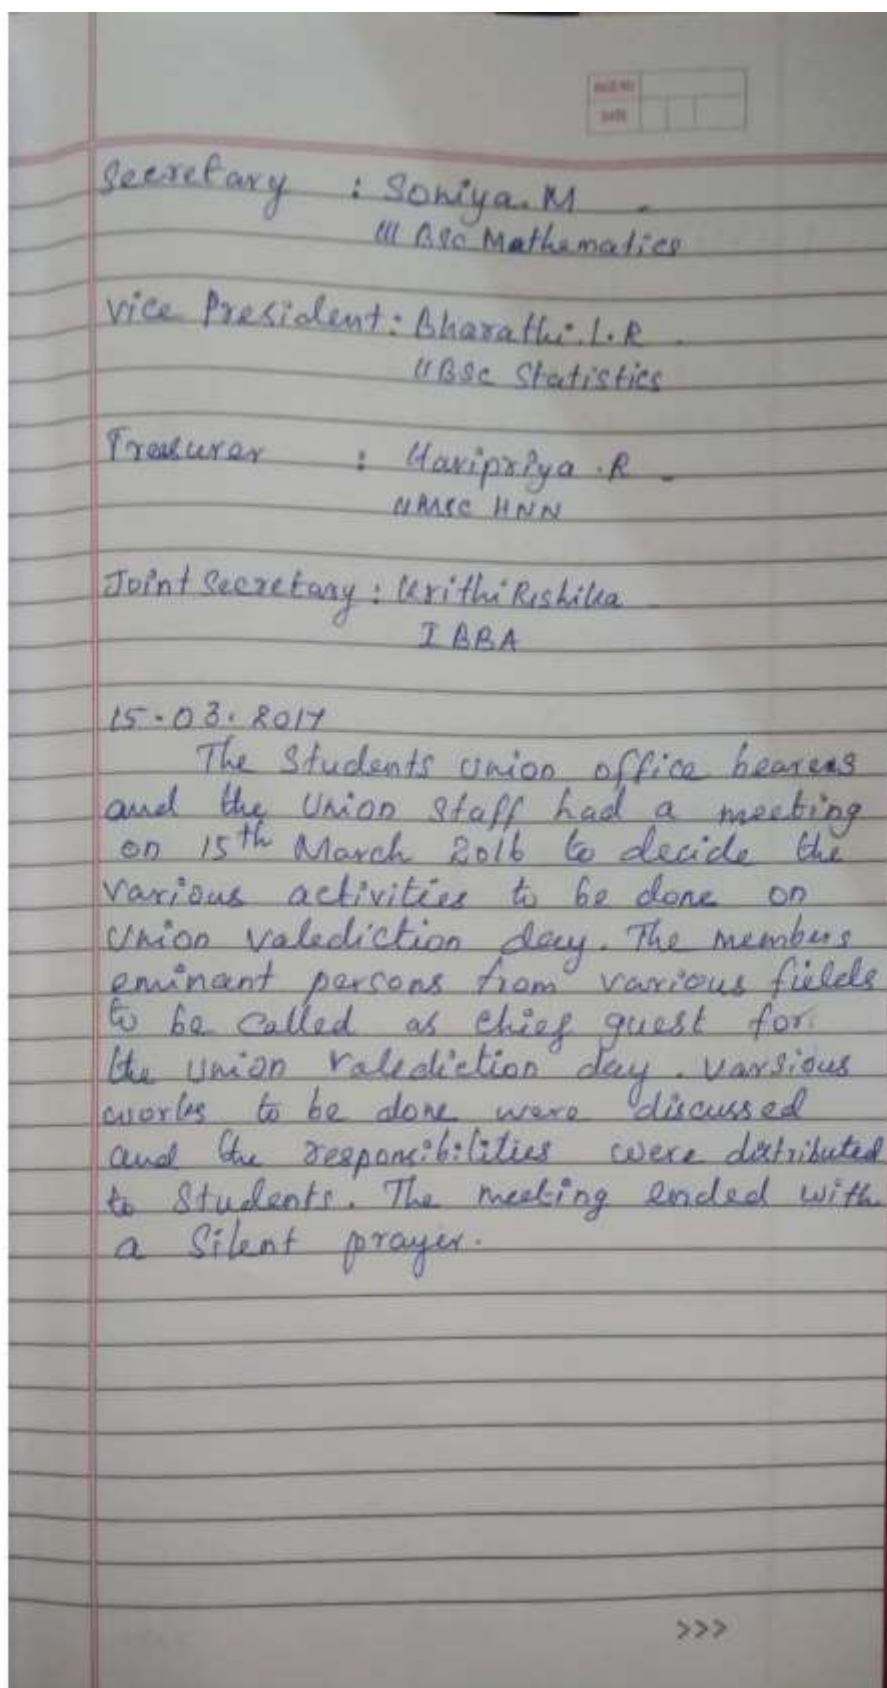 PAGE NO
DATE
Secretary : Soniya.M
III BSc Mathematics
Vice President : Bharathi.L.R
II BSc Statistics
Treasurer : Haripriya.R
II MSC HNN
Joint Secretary : Krithi Rishika
I BBA
15.03.2017
The Students Union office bearers
and the Union Staff had a meeting
on 15th March 2016 to decide the
various activities to be done on
Union valediction day. The members
eminant persons from various fields
to be called as chief guest for
the Union Valediction day. Varsious
works to be done were discussed
and the responsibilities were distributed
to Students. The meeting ended with
a Silent prayer.
>>>